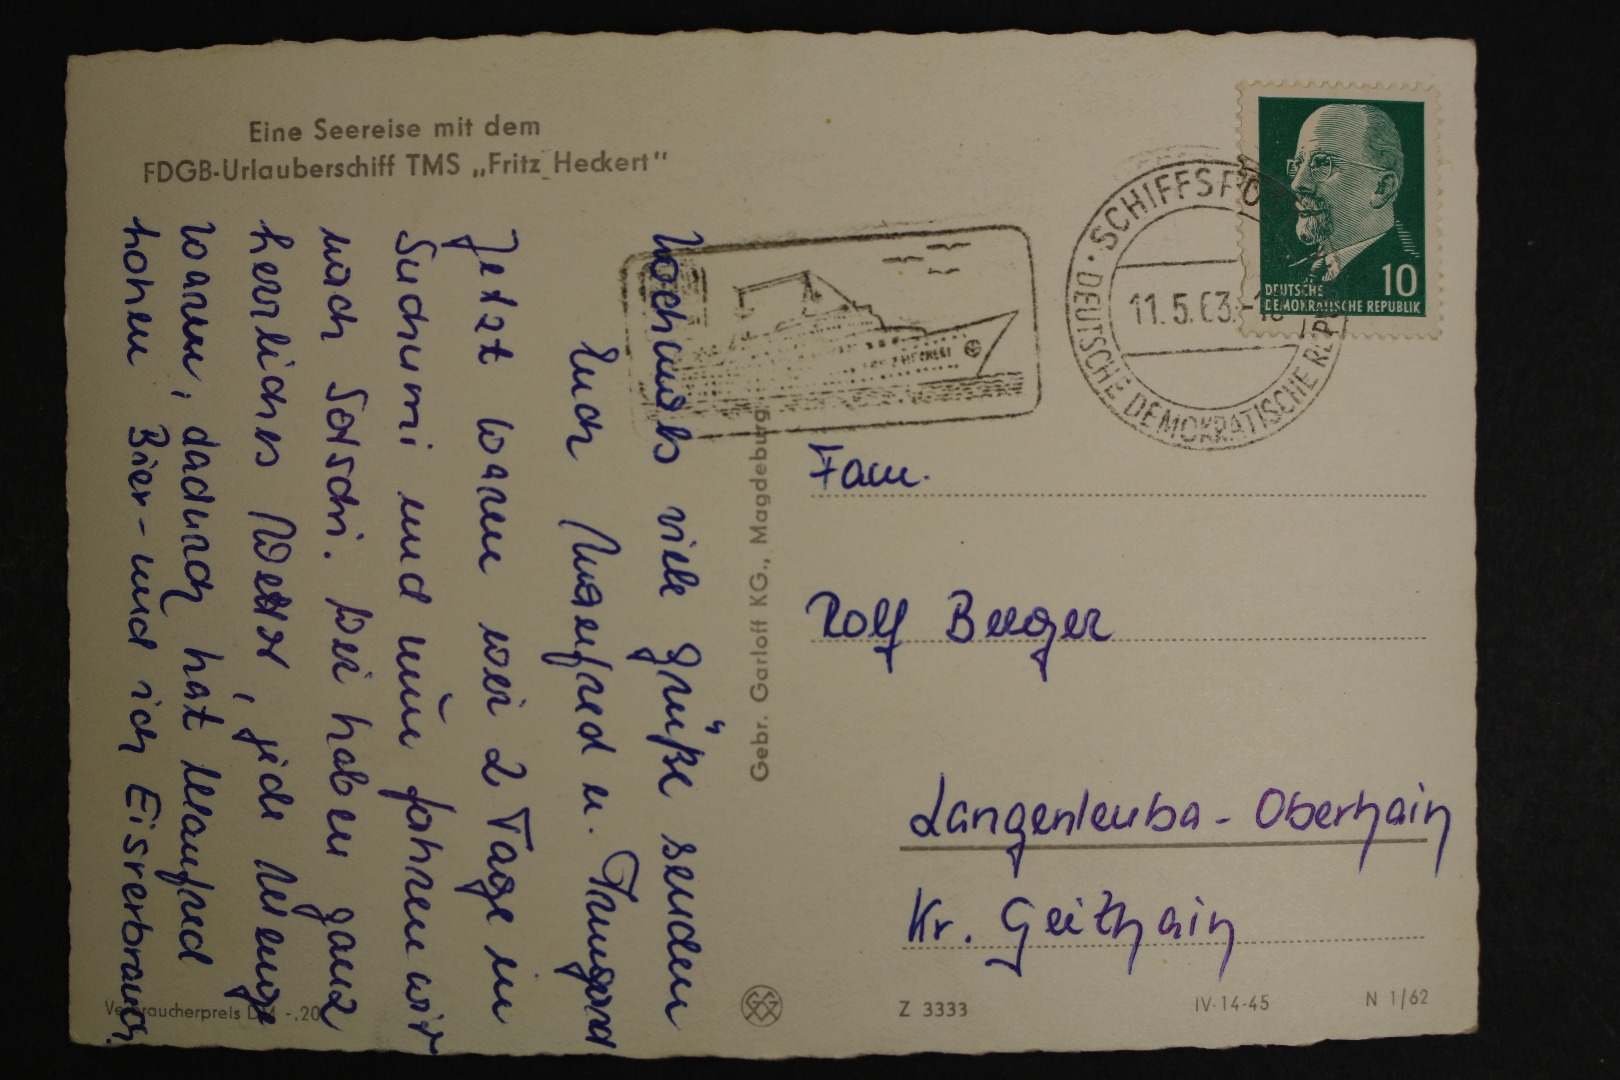 Eine Seereise mit dem
FDGB-Urlauberschiff TMS „Fritz Heckert"
Nochmals viele Grüße senden
Euch Manfred u. Irmgard
Jetzt waren wir 2 Tage in
Suchumi und nun fahren wir
nach Sotschi. Wir haben ganz
herrliches Wetter, jede Menge
warm, dadurch hat Manfred
hohen Bier- und ich Eisverbrauch.
Verbraucherpreis DM -,20
Gebr. Garloff KG., Magdeburg
SCHIFFSPO
11.5.63.
DEUTSCHE DEMOKRATISCHE REP
10
DEUTSCHE
DEMOKRATISCHE REPUBLIK
Fam.
Rolf
Langenleuba-Oberhain
Kr. Geithain
Z 3333
IV-14-45
N 1/62